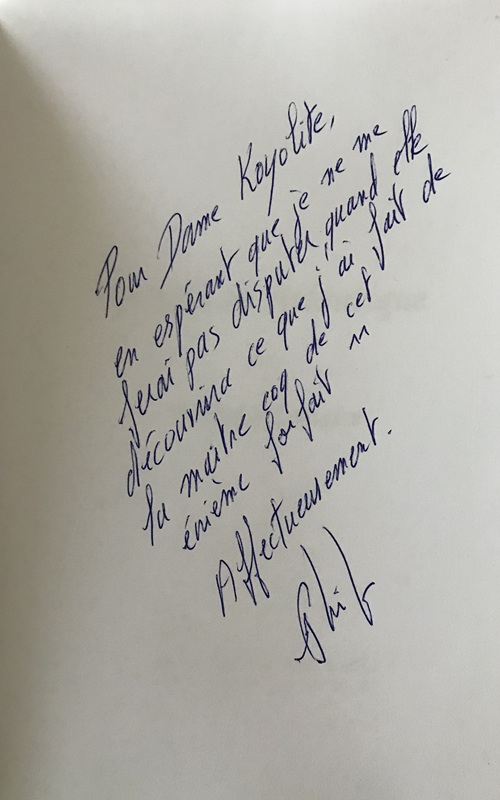 Pour Dame Koyolite,
en espérant que je ne me
ferai pas disputer quand elle
découvrira ce que j'ai fait de
la maître coq de cet
énième forfait
Affectueusement.